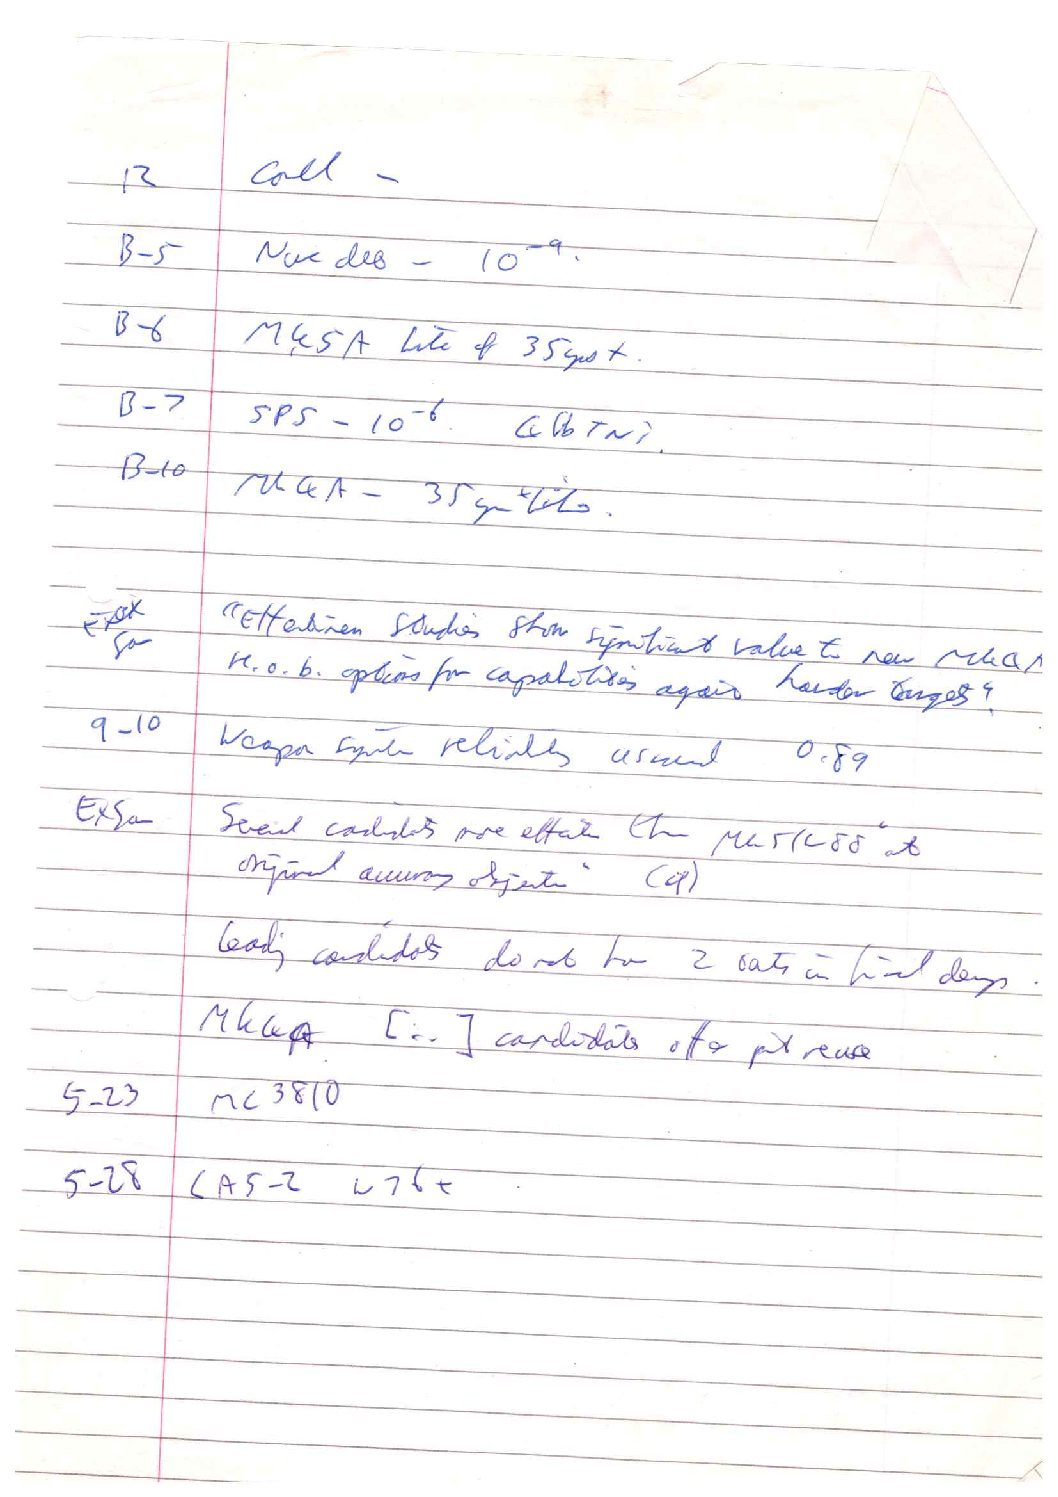 12 Coull –
B-5 Nuc des – 10⁻⁹.
B-6 Mk5A life of 35yrs+.
B-7 SPS – 10⁻⁶. 4 lb TNT.
B-10 Mk4A – 35yr+ life.
"Effectiveness studies show significant value to new Mk4A
H.o.b. options for capabilities against harder targets".
9-10 Weapon system reliability assumed 0.89
ExSum Several candidates more effective than Mk5/W88 "at
original accuracy objective" (q)
Leading candidates do not have 2 sats in final design.
Mk4A [...] candidates offer pit reuse
5-23 MC3810
5-28 CAS-2 W76+